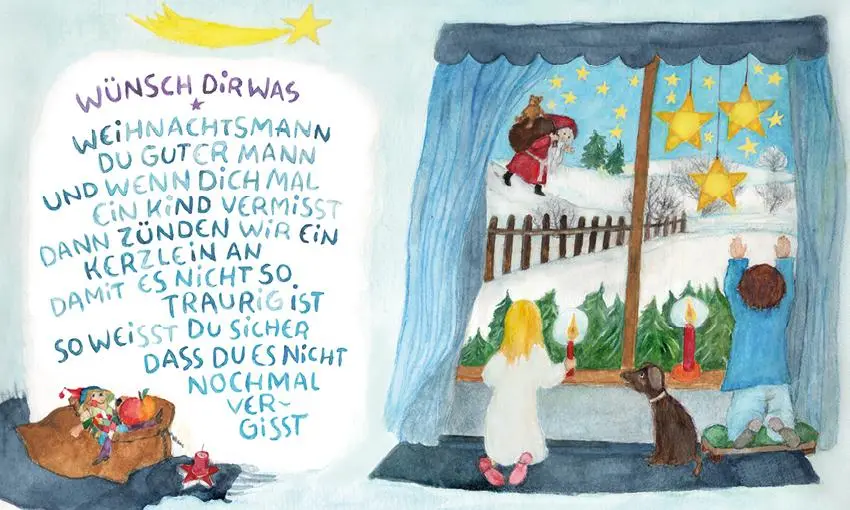 WÜNSCH DIR WAS
WEIHNACHTSMANN
DU GUTER MANN
UND WENN DICH MAL
EIN KIND VERMISST
DANN ZÜNDEN WIR EIN
KERZLEIN AN
DAMIT ES NICHT SO
TRAURIG IST
SO WEISST DU SICHER
DASS DU ES NICHT
NOCHMAL
VER~
GISST